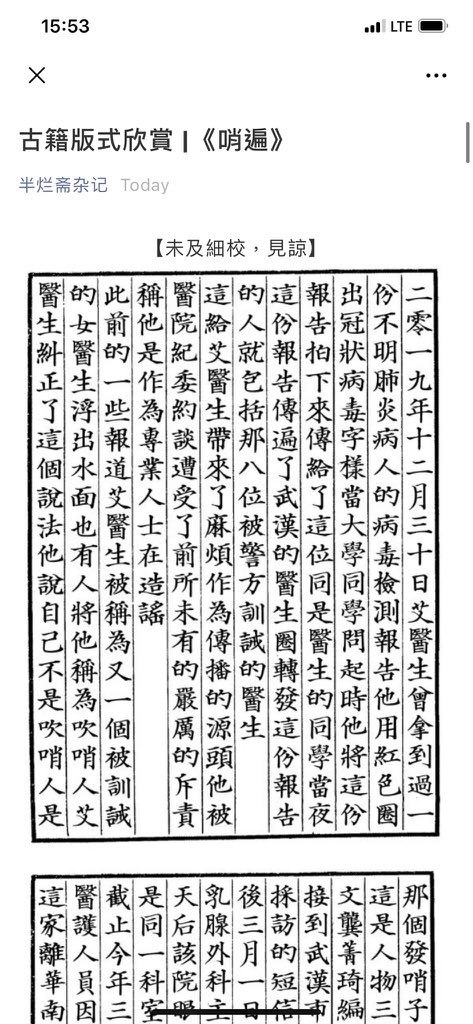 15:53
LTE
古籍版式欣賞 |《哨遍》
半烂斋杂记 Today
【未及細校，見諒】
二零一九年十二月三十日艾醫生曾拿到過一
份不明肺炎病人的病毒檢測報告他用紅色圈
出冠狀病毒字樣當大學同學問起時他將這份
報告拍下來傳給了這位同是醫生的同學當夜
這份報告傳遍了武漢的醫生圈轉發這份報告
的人就包括那八位被警方訓誡的醫生
這給艾醫生帶來了麻煩作為傳播的源頭他被
醫院紀委約談遭受了前所未有的嚴厲的斥責
稱他是作為專業人士在造謠
此前的一些報道艾醫生被稱為又一個被訓誡
的女醫生浮出水面也有人將他稱為吹哨人艾
醫生糾正了這個說法他說自己不是吹哨人是
那個發哨子
這是人物三
文龔菁琦編
接到武漢市
採訪的短信
後三月一日
乳腺外科主
天后該院眼
是同一科室
截止今年三
醫護人員因
這家離華南